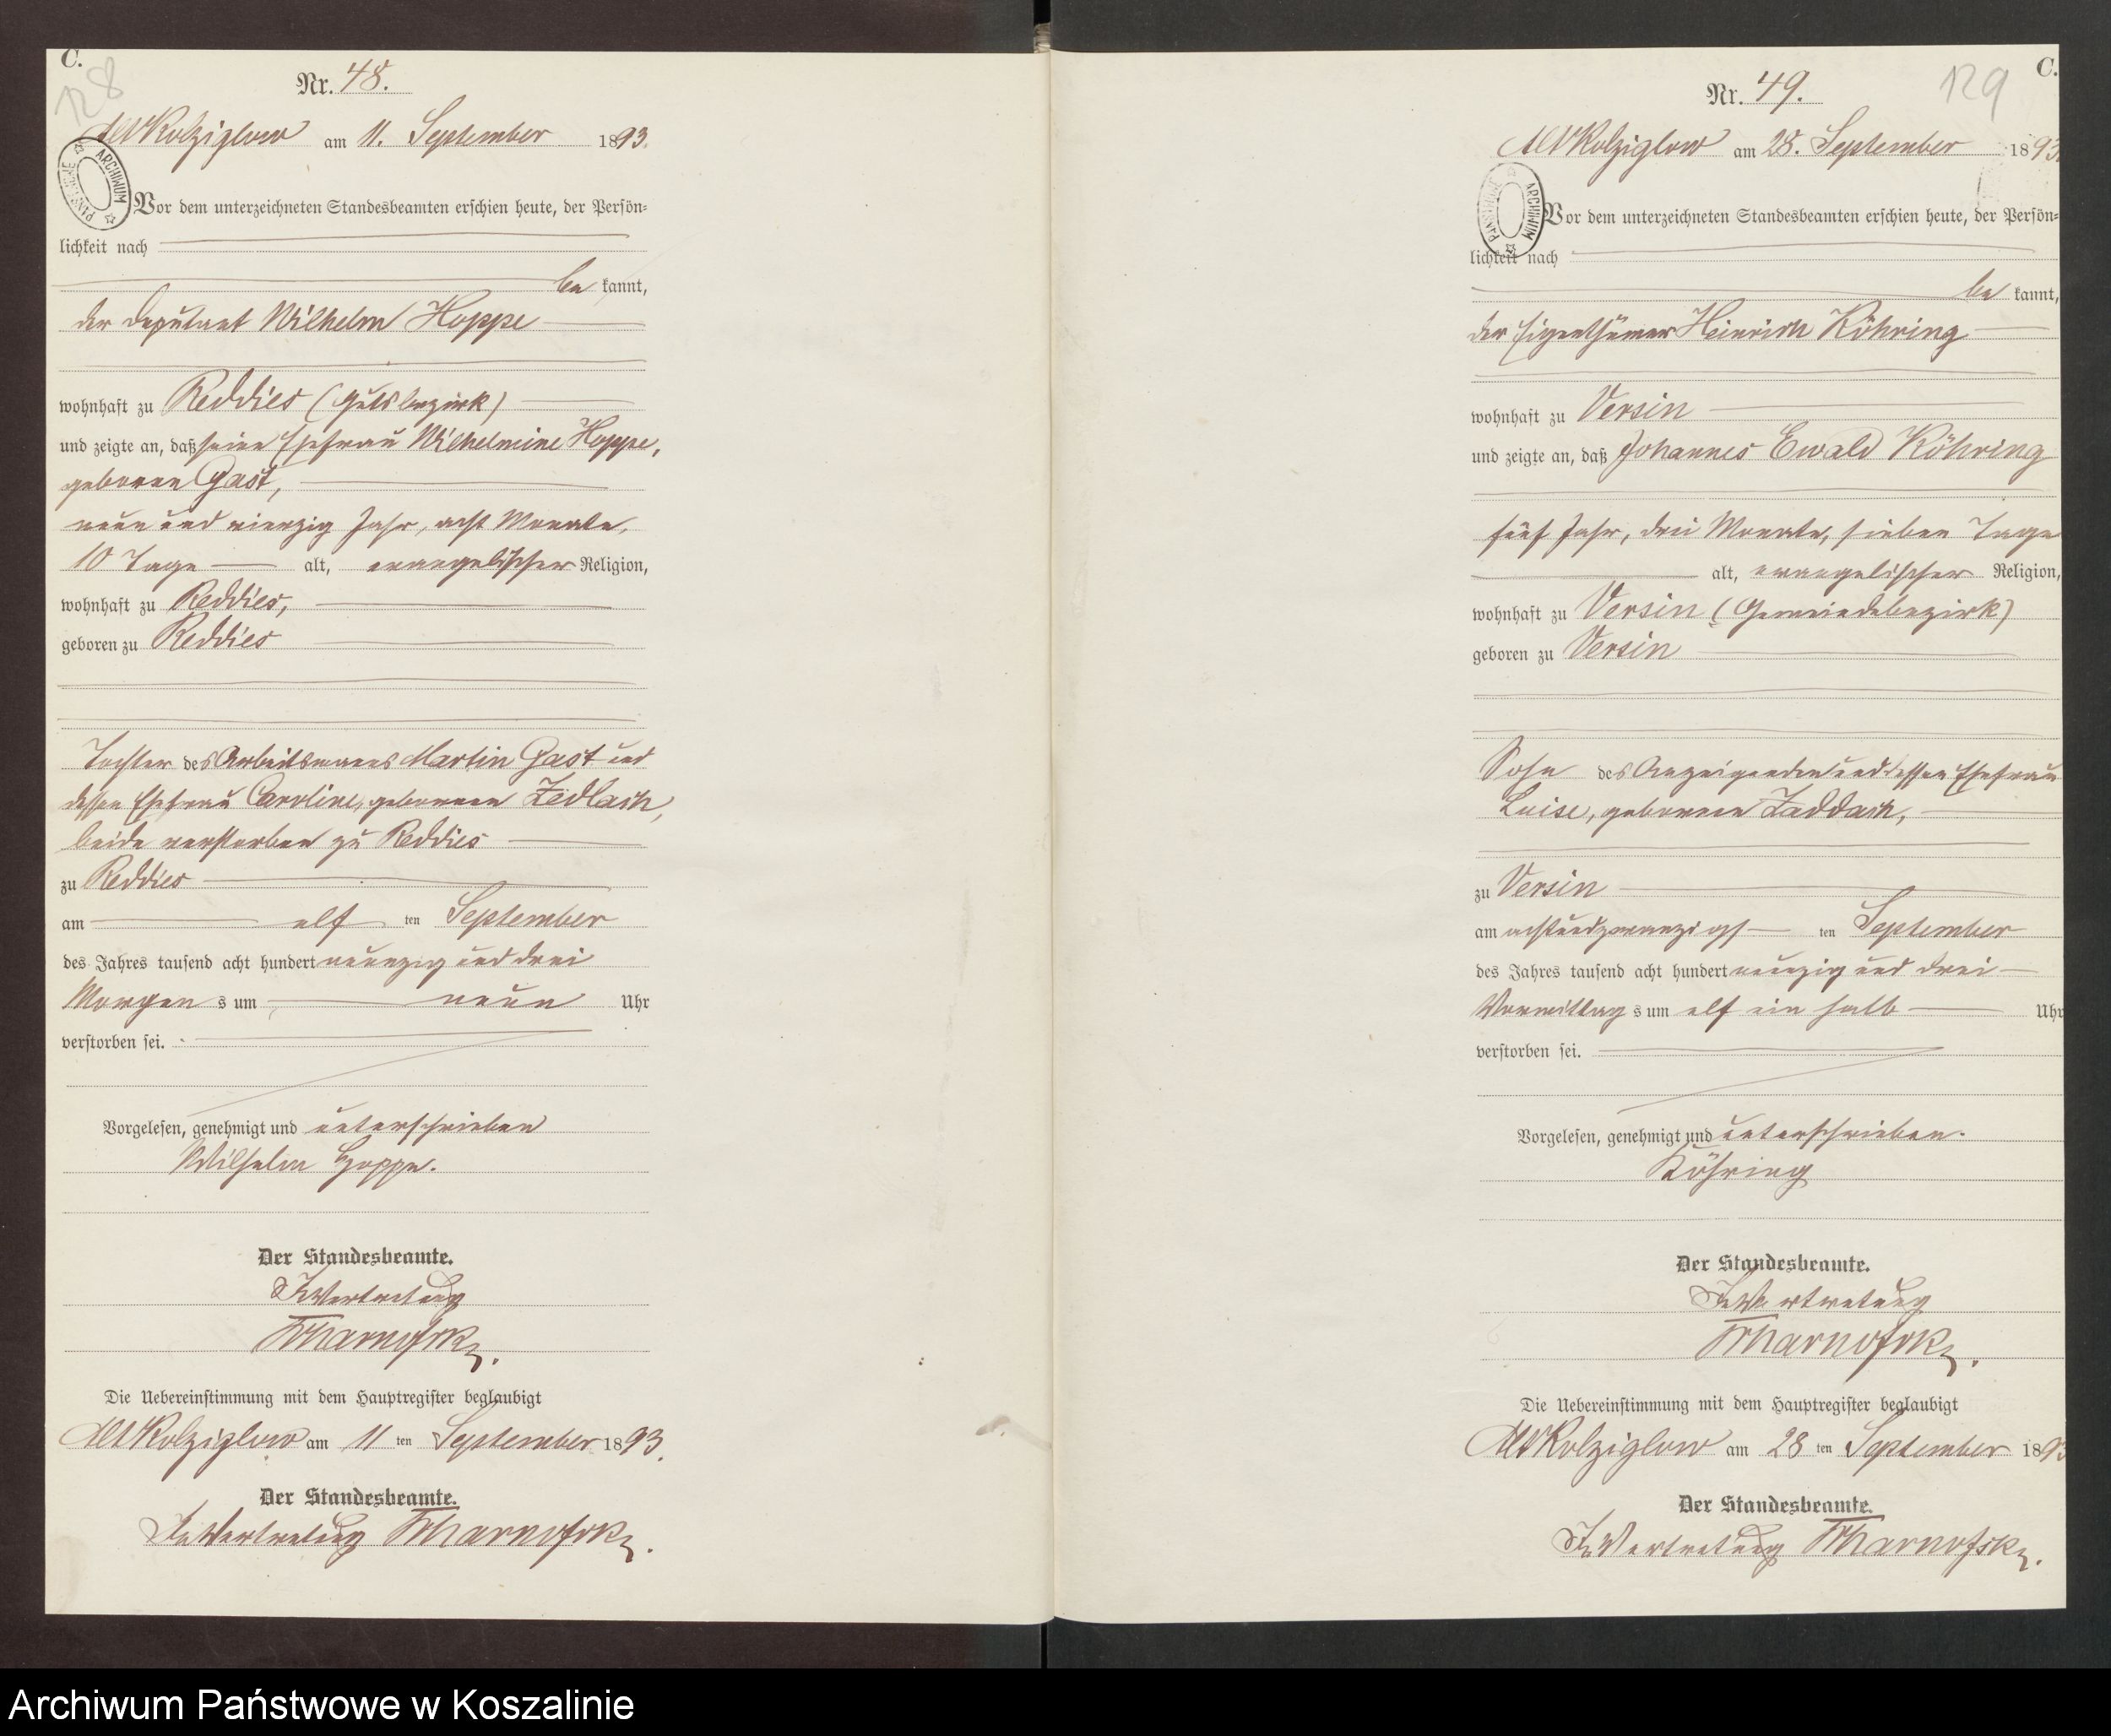 C.
128
Nr. 48.
Alt Kolziglow am 11. September 1893.
ARCHIWUM PAŃSTWOWE
Vor dem unterzeichneten Standesbeamten erschien heute, der Persön-
lichkeit nach
be kannt,
der Deputant Wilhelm Hoppe
wohnhaft zu Reddies (Gutsbezirk)
und zeigte an, daß seine Ehefrau Wilhelmine Hoppe,
geborene Gast,
neun und vierzig Jahr, acht Monate,
10 Tage alt, evangelischer Religion,
wohnhaft zu Reddies,
geboren zu Reddies
Tochter des Arbeitsmanns Martin Gast und
dessen Ehefrau Caroline, geborenen Zedlach,
beide verstorben zu Reddies
zu Reddies
am elf ten September
des Jahres tausend acht hundert neunzig und drei
Morgen s um neun Uhr
verstorben sei.
Vorgelesen, genehmigt und unterschrieben
Wilhelm Hoppe.
Der Standesbeamte.
In Vertretung
Die Uebereinstimmung mit dem Hauptregister beglaubigt
Alt Kolziglow am 11 ten September 1893.
Der Standesbeamte.
In Vertretung
C.
129
Nr. 49.
Alt Kolziglow am 28. September 1893.
ARCHIWUM PAŃSTWOWE
Vor dem unterzeichneten Standesbeamten erschien heute, der Persön-
lichkeit nach
be kannt,
der Eigenthümer Heinrich Köhring
wohnhaft zu Versin
und zeigte an, daß Johannes Ewald Köhring
fünf Jahr, drei Monate, sieben Tage
alt, evangelischer Religion,
wohnhaft zu Versin (Gemeindebezirk)
geboren zu Versin
Sohn des Anzeigenden und dessen Ehefrau
Luise, geborenen Zaddach,
zu Versin
am achtundzwanzigs ten September
des Jahres tausend acht hundert neunzig und drei
Vormittag s um elf ein halb Uhr
verstorben sei.
Vorgelesen, genehmigt und unterschrieben.
Köhring
Der Standesbeamte.
In Vertretung
Die Uebereinstimmung mit dem Hauptregister beglaubigt
Alt Kolziglow am 28 ten September 1893
Der Standesbeamte.
In Vertretung
Archiwum Państwowe w Koszalinie